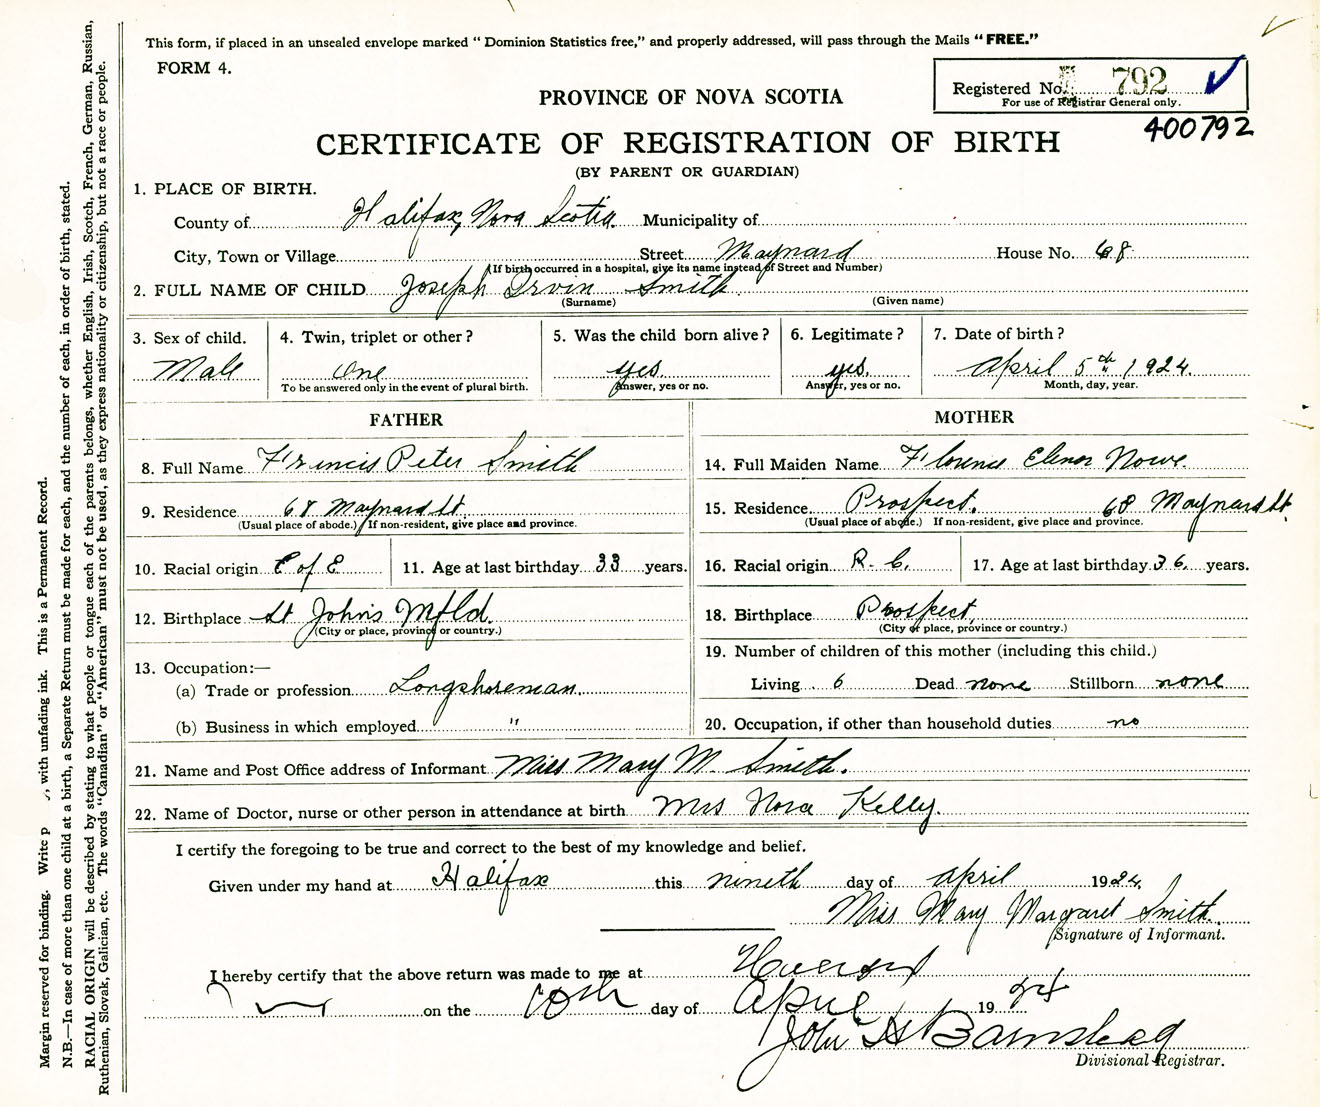 This form, if placed in an unsealed envelope marked “Dominion Statistics free,” and properly addressed, will pass through the Mails “FREE.”
FORM 4.
Registered No. 792
For use of Registrar General only.
400792
PROVINCE OF NOVA SCOTIA
CERTIFICATE OF REGISTRATION OF BIRTH
(BY PARENT OR GUARDIAN)
1. PLACE OF BIRTH.
County of Halifax, Nova Scotia. Municipality of
City, Town or Village Street Maynard House No. 68
(If birth occurred in a hospital, give its name instead of Street and Number)
2. FULL NAME OF CHILD Joseph Irvin Smith
(Surname) (Given name)
3. Sex of child. 4. Twin, triplet or other? 5. Was the child born alive? 6. Legitimate? 7. Date of birth?
Male One yes. yes. April 5th 1924.
To be answered only in the event of plural birth. Answer, yes or no. Answer, yes or no. Month, day, year.
FATHER
8. Full Name Francis Peter Smith
9. Residence 68 Maynard St.
(Usual place of abode.) If non-resident, give place and province.
10. Racial origin C of E 11. Age at last birthday 33 years.
12. Birthplace St Johns Nfld.
(City or place, province or country.)
13. Occupation:—
(a) Trade or profession Longshoreman.
(b) Business in which employed "
MOTHER
14. Full Maiden Name Florence Elenor Nowe.
15. Residence Prospect. 68 Maynard St.
(Usual place of abode.) If non-resident, give place and province.
16. Racial origin R. C. 17. Age at last birthday 36 years.
18. Birthplace Prospect,
(City or place, province or country.)
19. Number of children of this mother (including this child.)
Living 6 Dead none Stillborn none
20. Occupation, if other than household duties no
21. Name and Post Office address of Informant Miss Mary M. Smith.
22. Name of Doctor, nurse or other person in attendance at birth Mrs Nora Kelly.
I certify the foregoing to be true and correct to the best of my knowledge and belief.
Given under my hand at Halifax this nineth day of April 1924.
Miss Mary Margaret Smith.
Signature of Informant.
I hereby certify that the above return was made to me at
on the 10th day of April 1924
John H
Divisional Registrar.
Margin reserved for binding. Write p , with unfading ink. This is a Permanent Record.
N.B.—In case of more than one child at a birth, a Separate Return must be made for each, and the number of each, in order of birth, stated.
RACIAL ORIGIN will be described by stating to what people or tongue each of the parents belongs, whether English, Irish, Scotch, French, German, Russian,
Ruthenian, Slovak, Galician, etc. The words “Canadian” or “American” must not be used, as they express nationality or citizenship, but not a race or people.